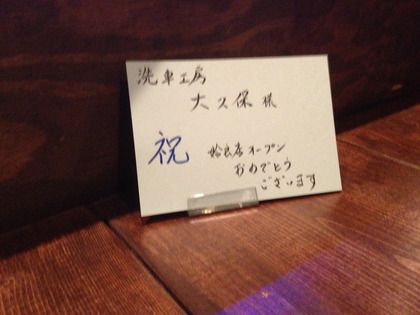 洗車工房
大久保様
祝
姶良店オープン
おめでとう
ございます